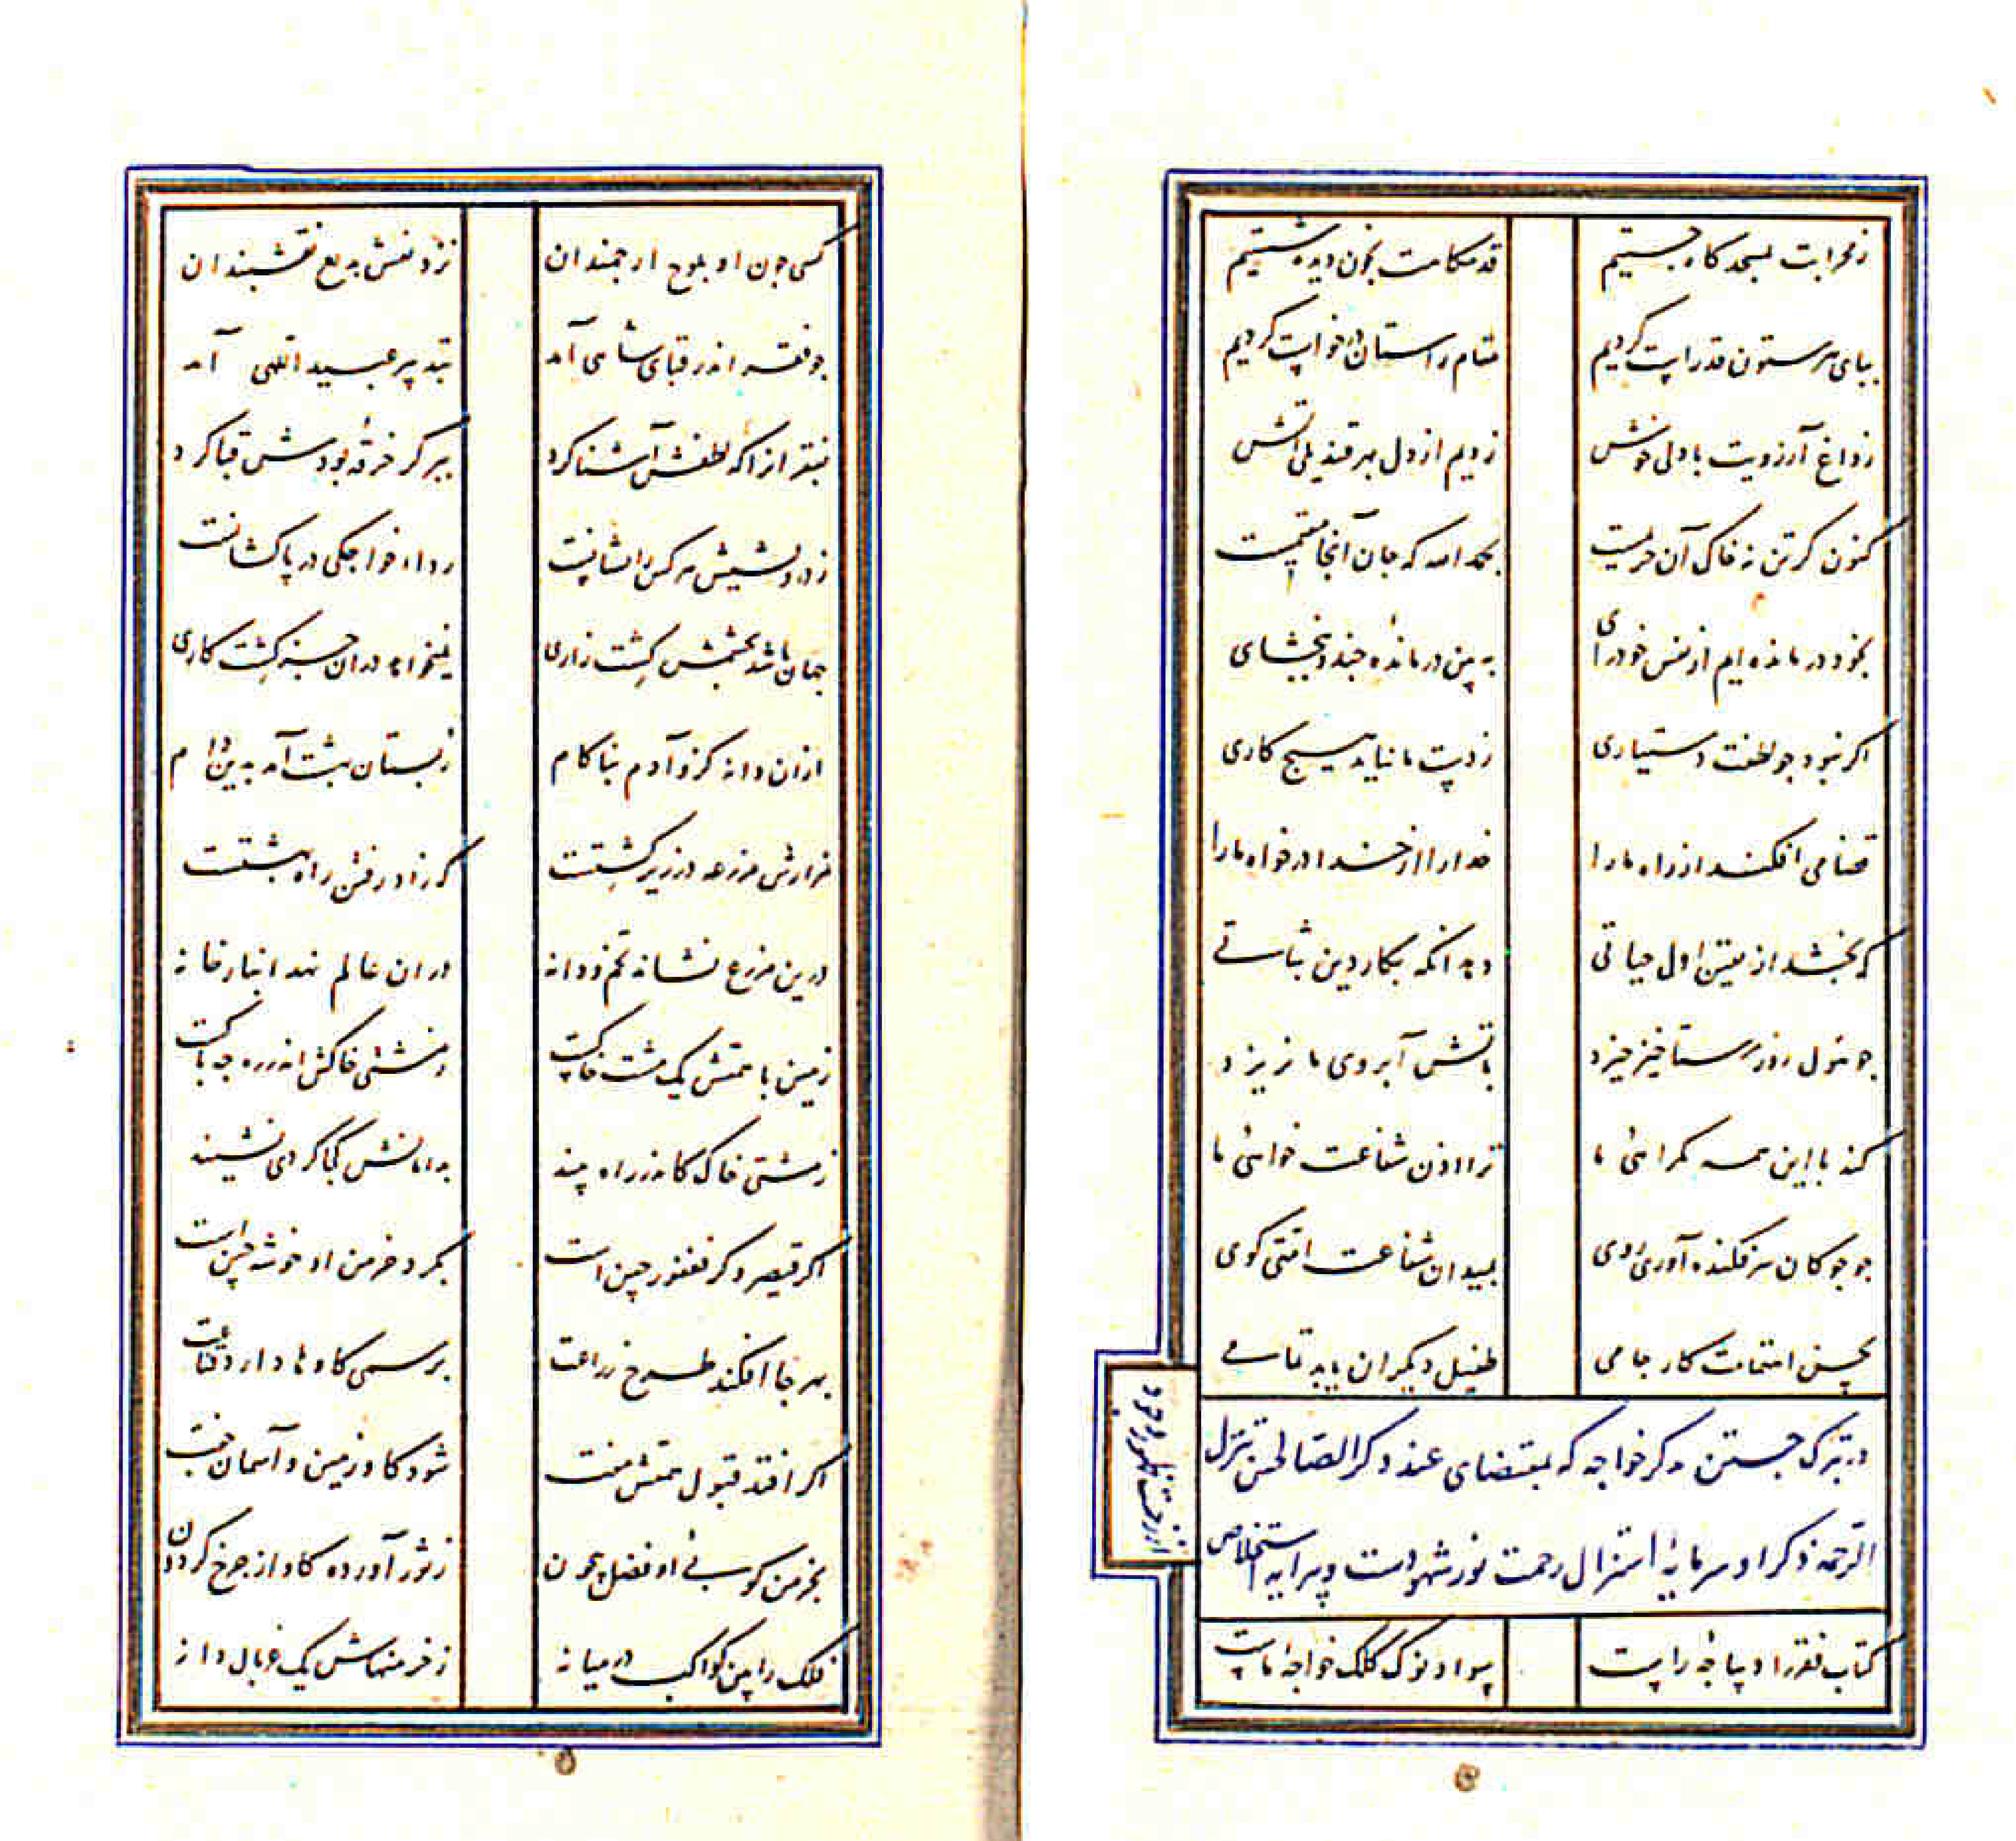 ز محرابت بسجده کاه جستیم قدمکاهت بخون دیده شستیم
بپای هر ستون قد راست کردیم مقام راستان درخواست کردیم
ز داغ آرزویت با دلی خوش زدیم از دل بهر قندیلی آتش
کنون کر تن نه خاک آن حریمست بحمد الله که جان آنجا مقیمست
بخود درمانده ایم از نفس خودرای به بین درمانده چند و ببخشای
اکر نبود جو لطفت دستیاری ز دست ما نیاید هیچ کاری
قضا می افکند از راه ما را خدا را از خدا درخواه ما را
که بخشد از یقین اول حیاتی دهد آنکه بکار دین ثباتی
جو هول روز رستاخیز خیزد بآتش آبروی ما نریزد
کند با این همه کمراهی ما ترا اذن شفاعت خواهی ما
جو جوکان سرفکنده آوری روی بمیدان شفاعت امتی کوی
بحسن اهتمامت کار جامی طفیل دیکران یابد تمامی
در تبرک جستن بذکر خواجه که بمقتضای عند ذکر الصالحین تنزل
الرحمه ذکر او سرمایه استنزال رحمت نور شهودست و پیرایه استخلاص
از زحمت ظهور وجود
کتاب فقر را دیباجه راست سواد نوک کلک خواجه ماست
کسی جون او بلوح ارجمندان نزد نقش بدیع نقشبندان
جو فقر اندر قبای شاهی آمد بتدبیر عبید اللهی آمد
بفقر آنرا که لطفش آشنا کرد ببر کر خرقه بودش قبا کرد
ز درویشیش هر کس را نشانیست ردای خواجکی در پاکشانست
جهان باشد بچشمش کشت زاری نمیخواهد در آن جز کشت کاری
از آن دانه کزو آدم بناکام ز بستان بهشت آمد بدین دام
هزارش مزرعه در زیر کشتست که زاد رفتن راه بهشتست
درین مزرع فشاند تخم و دانه در آن عالم نهد انبار خانه
زمین با همتش یک مشت خاکست ز مشتی خاکش اندر ره جه باکست
ز مشتی خاک کاندر راه بیند بدامانش کجا کردی نشیند
اکر قیصر وکر فغفور جین است بکرد خرمن او خوشه جین است
بهر جا افکند طرح زراعت برسمی کاوها دارد قناعت
اکر افتد قبول همتش مفت شود کاو زمین و آسمان جفت
بخرمن کوبی او فضل بیجون ز ثور آورده کاو از جرخ کردون
فلک را بین کواکب در میانه ز خرمنهاش یک غربال دانه